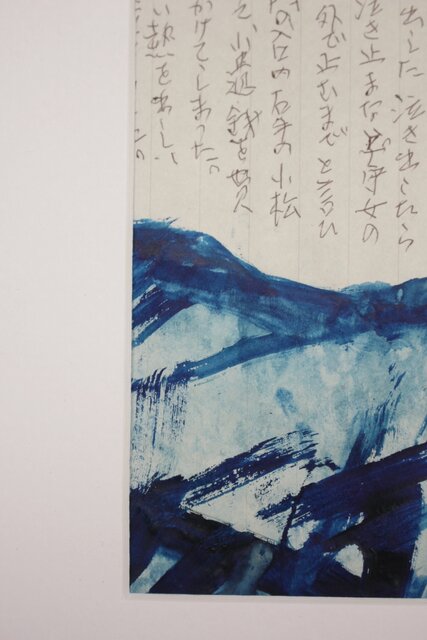 出した 泣き出したら
泣き止まな 守女の
外で止むまでと言ひ
の入口の右手の小松
て、小 銭を貰
かけてしまった。
い熱を出し、